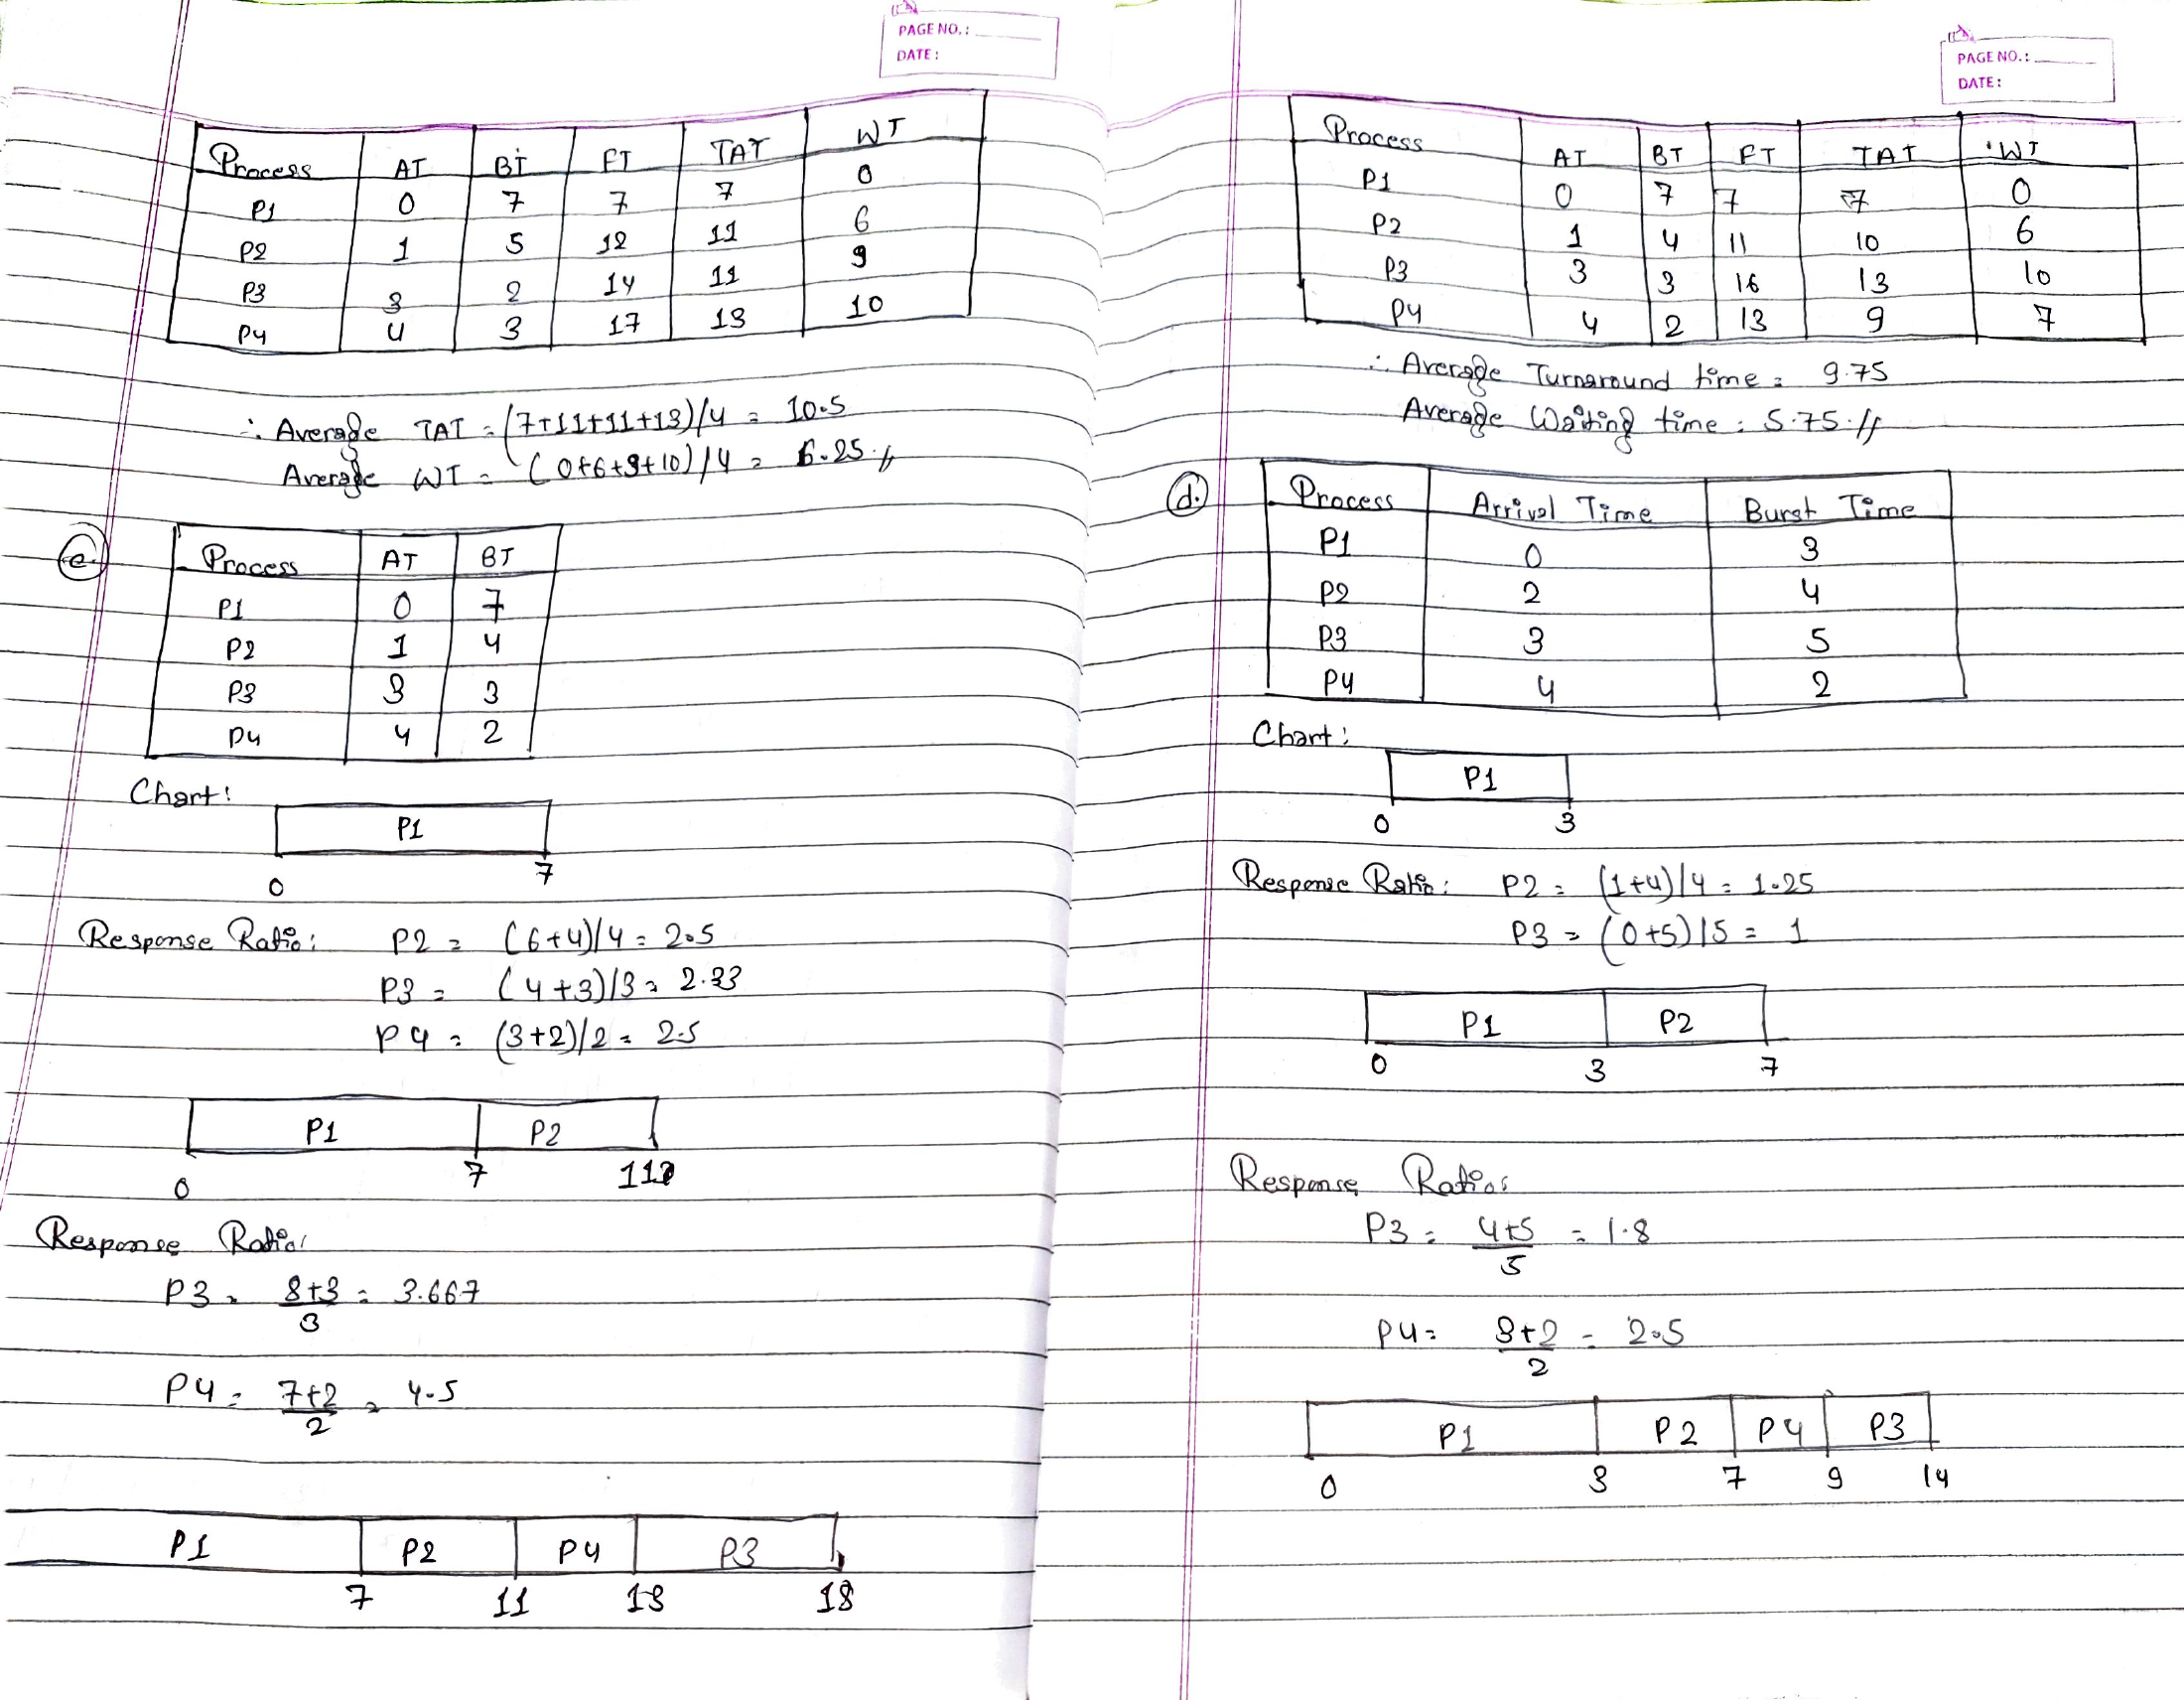 PAGE NO.:
DATE:
Process AT BT FT TAT WT
P1 0 7 7 7 0
P2 1 5 12 11 6
P3 3 2 14 11 9
P4 4 3 17 13 10
∴ Average TAT = (7+11+11+13)/4 = 10.5
Average WT = (0+6+9+10)/4 = 6.25 //
c.
Process AT BT
P1 0 7
P2 1 4
P3 3 3
P4 4 2
Chart:
P1
0 7
Response Ratio: P2 = (6+4)/4 = 2.5
P3 = (4+3)/3 = 2.33
P4 = (3+2)/2 = 2.5
P1 P2
0 7 11
Response Ratio:
P3 = 8+3/3 = 3.667
P4 = 7+2/2 = 4.5
P1 P2 P4 P3
7 11 13 18
PAGE NO.:
DATE:
Process AT BT FT TAT WT
P1 0 7 7 7 0
P2 1 4 11 10 6
P3 3 3 16 13 10
P4 4 2 13 9 7
∴ Average Turnaround time = 9.75
Average Waiting time = 5.75 //
d.
Process Arrival Time Burst Time
P1 0 3
P2 2 4
P3 3 5
P4 4 2
Chart:
P1
0 3
Response Ratio: P2 = (1+4)/4 = 1.25
P3 = (0+5)/5 = 1
P1 P2
0 3 7
Response Ratio:
P3 = 4+5/5 = 1.8
P4 = 3+2/2 = 2.5
P1 P2 P4 P3
0 3 7 9 14